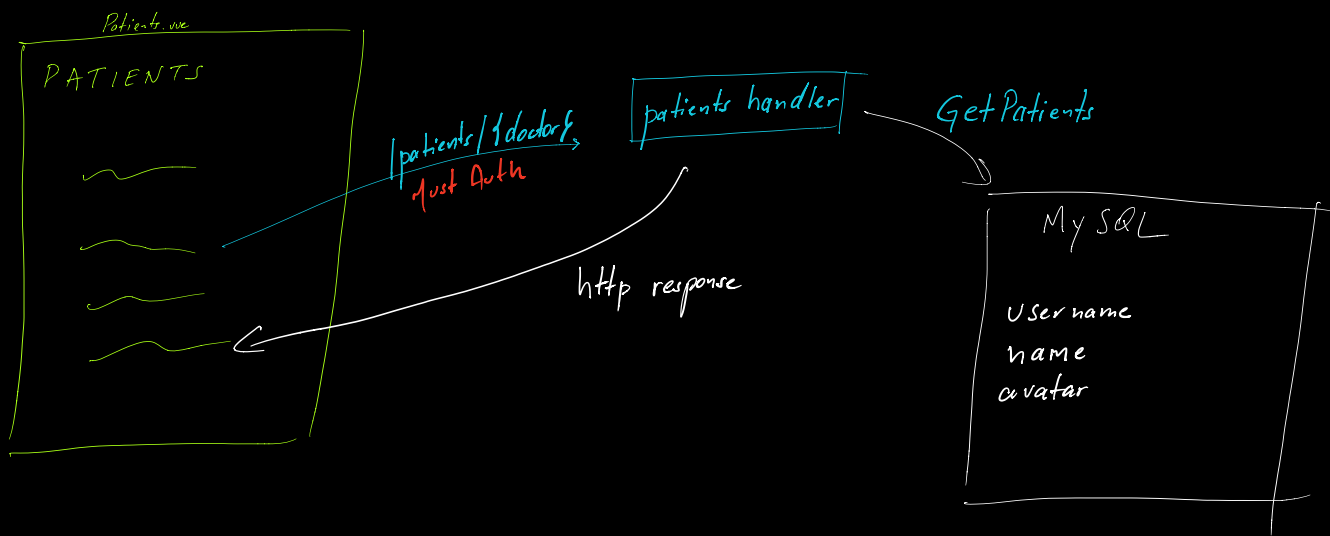 Patients.vue
PATIENTS
/patients/{doctor}
Must Auth
patients handler
GetPatients
http response
MySQL
username
name
avatar